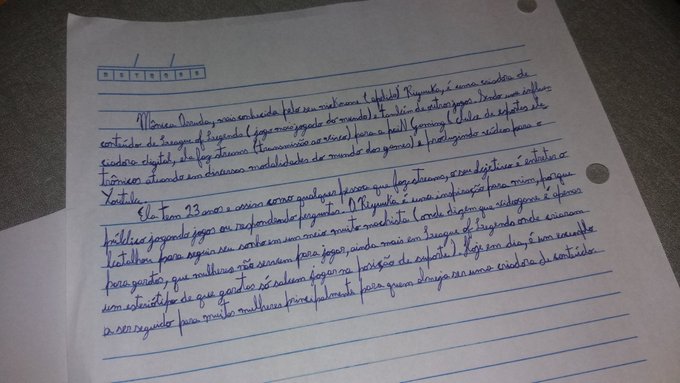 D S T Q Q S S
Mônica Arruda, mais conhecida pelo seu nickname (apelido) Riyuuka, é uma criadora de
conteúdo de League of Legends (jogo mais jogado do mundo) e também de outros jogos. Sendo uma influen
ciadora digital, ela faz streams (transmissão ao vivo) para a paiN Gaming (clube de esportes ele
trônicos atuando em diversas modalidades do mundo dos games) e produzindo vídeos para o
Youtube.
Ela tem 23 anos e assim como qualquer pessoa que faz streams, o seu objetivo é entreter o
público jogando jogos ou respondendo perguntas. A Riyuuka é uma inspiração para mim, porque
batalhou para seguir seu sonho em um meio muito machista (onde dizem que videogame é apenas
para garotos, que mulheres não servem para jogar, ainda mais em League of Legends onde criaram
um esteriótipo de que garotas só sabem jogar na posição de suporte). Hoje em dia, é um exemplo
a ser seguido para muitas mulheres principalmente para quem almeja ser uma criadora de conteúdo.